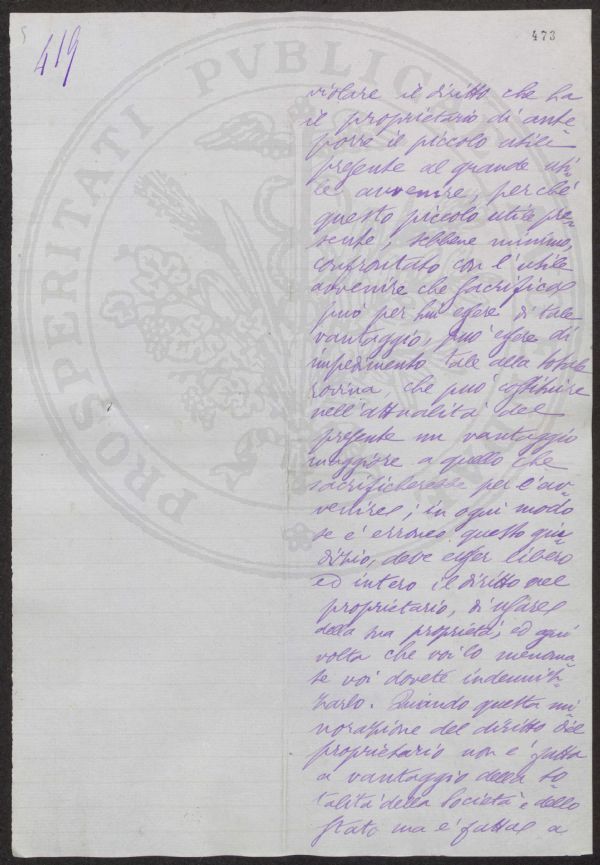 419
473
PROSPERITATI PVBLICAE
violare il diritto che ha
il proprietario di ante
porre il piccolo utile
presente al grande uti-
le avvenire, perché
questo piccolo utile pre-
sente, sebbene minimo,
confrontato con l'utile
avvenire che sacrifica
può per lui essere di tale
vantaggio, può essere di
impedimento tale alla totale
rovina, che può costituire
nell'attualità del
presente un vantaggio
maggiore a quello che
sacrificherebbe per l'av-
venire; in ogni modo
se è erroneo questo giu-
dizio, deve esser libero
ed intero il diritto nel
proprietario, di usare
della sua proprietà, ed ogni
volta che voi lo menoma
te voi dovete indenniz-
zarlo. Quando questa mi
norazione del diritto del
proprietario non è fatta
a vantaggio della to
talità della Società e dello
Stato ma è fatta a